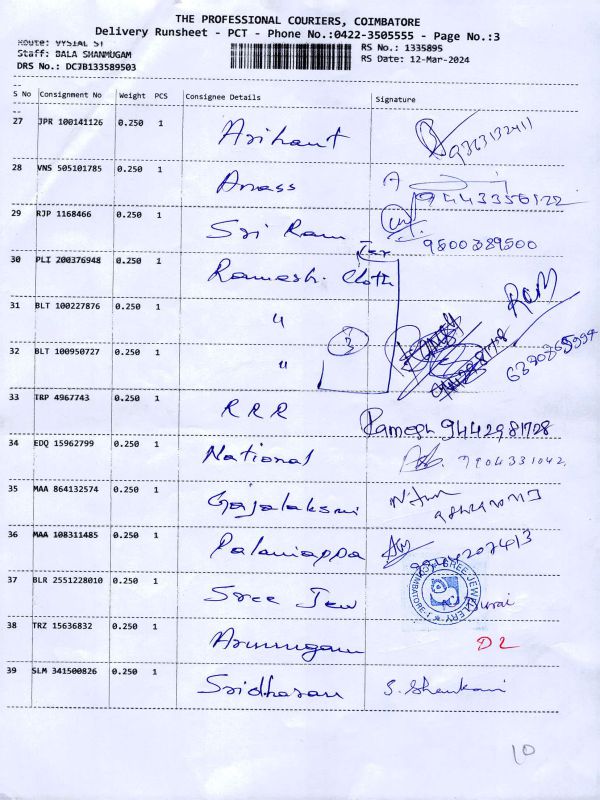 THE PROFESSIONAL COURIERS, COIMBATORE
Delivery Runsheet - PCT - Phone No.:0422-3505555 - Page No.:3
Route: VYSIAL ST RS No.: 1335895
Staff: BALA SHANMUGAM RS Date: 12-Mar-2024
DRS No.: DCJB133589503
S No Consignment No Weight PCS Consignee Details Signature
27 JPR 100141126 0.250 1 Arihant 9363132411
28 VNS 505101785 0.250 1 Anass 9443356122
29 RJP 1168466 0.250 1 Sri Ram 9500389500
30 PLI 200376948 0.250 1 Ramesh. Cloth Tex
31 BLT 100227876 0.250 1 " RAM
32 BLT 100950727 0.250 1 " 3
33 TRP 4967743 0.250 1 RRR Ramesh 9442981728
34 EDQ 15962799 0.250 1 National 9904331042
35 MAA 864132574 0.250 1 Gajalaksmi
36 MAA 108311485 0.250 1 Palaniappa
37 BLR 2551228010 0.250 1 Sree Jew Durai
SREE JEWELLERY COIMBATORE-1
38 TRZ 15636832 0.250 1 Arumugam D2
39 SLM 341500826 0.250 1 Sridharan S. Shenkani
10